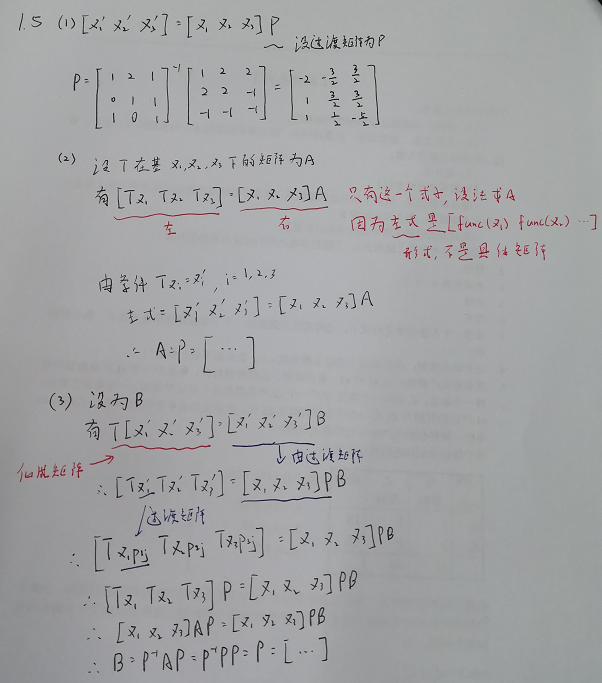 1.5 (1) [x₁' x₂' x₃'] = [x₁ x₂ x₃] P
设过渡矩阵为P
P = [1 2 1; 0 1 1; 1 0 1]⁻¹ [1 2 2; 2 2 -1; -1 -1 -1] = [-2 -3/2 3/2; 1 3/2 3/2; 1 1/2 -5/2]
(2) 设T在基x₁,x₂,x₃下的矩阵为A
有[Tx₁ Tx₂ Tx₃] = [x₁ x₂ x₃] A 只有这一个式子, 没法求A
左 右 因为左式是[func(x₁) func(x₂) …]
形式, 不是具体矩阵
由条件 Txᵢ = xᵢ', i = 1, 2, 3
左式 = [x₁' x₂' x₃'] = [x₁ x₂ x₃] A
∴ A = P = […]
(3) 设为B
有 T[x₁' x₂' x₃'] = [x₁' x₂' x₃'] B
矩阵 由过渡矩阵
∴ [Tx₁' Tx₂' Tx₃'] = [x₁ x₂ x₃] PB
过渡矩阵
∴ [Tx₁p₁j Tx₂p₂j Tx₃p₃j] = [x₁ x₂ x₃] PB
∴ [Tx₁ Tx₂ Tx₃] P = [x₁ x₂ x₃] PB
∴ [x₁ x₂ x₃] AP = [x₁ x₂ x₃] PB
∴ B = P⁻¹AP = P⁻¹PP = P = […]